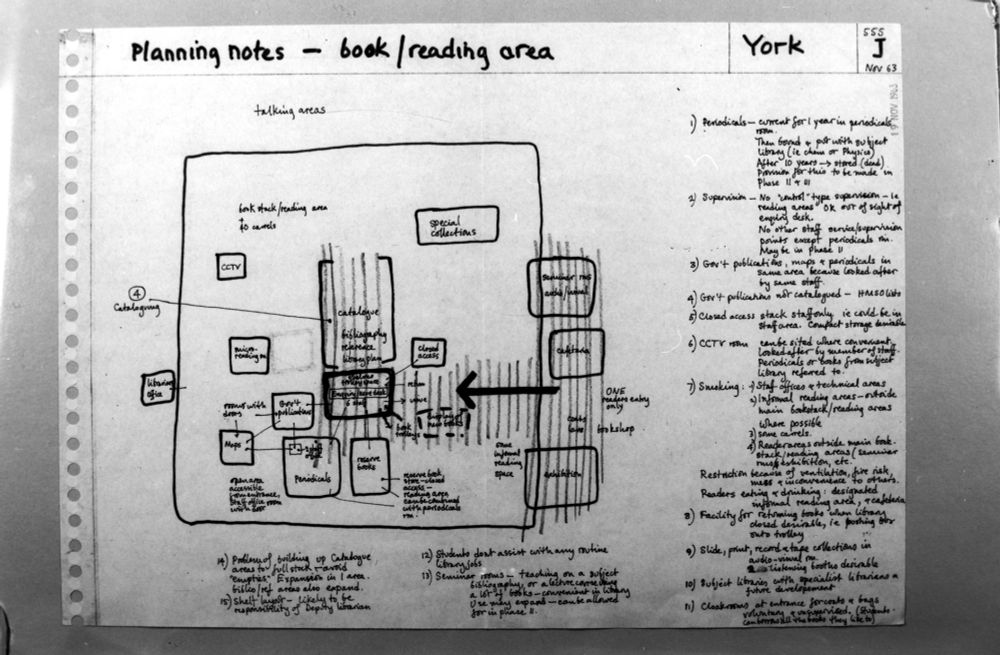 Planning notes — book/reading area
York
555
J
Nov 63
19 NOV 1963
talking areas
book stack/reading area
carrels
special
collections
CCTV
4
Cataloguing
catalogue
bibliography
reference
library plan
seminar rms
audio/visual
micro-
reading rm
closed
access
cafeteria
librarians
office
rooms with
doors
Gov't
publications
Enquiry/issue desk
6 staff
return
issue
display of
new books
book
trolleys
ONE
readers entry
only
bookshop
Maps
Periodicals
reserve
books
some
informal
reading
space
exhibition
open area
accessible
from entrance,
staff office room
with door
reserve book
store — closed
access —
reading area
can be combined
with periodicals
rm.
1) Periodicals — current for 1 year in periodicals
room.
Then bound & put with subject
library (ie chem or Physics)
After 10 years → stored (dead)
Provision for this to be made in
Phase II & III
2) Supervision — No "control" type supervision — ie
reading areas OK out of sight of
enquiry desk.
No other staff service/supervision
points except periodicals rm.
May be in Phase II
3) Gov't publications, maps & periodicals in
same area because looked after
by same staff.
4) Gov't publications not catalogued — HMSO lists
5) Closed access stack staff only ie could be in
staff area. Compact storage desirable
6) CCTV room can be sited where convenient
looked after by member of staff.
Periodicals or books from subject
library referred to.
7) Smoking: 1) Staff offices & technical areas
2) Informal reading areas — outside
main bookstack/reading areas
where possible
3) some carrels.
4) Reader areas outside main book-
stack/reading areas (seminar
rms exhibition, etc.
Restriction because of ventilation, fire risk,
mess & inconvenience to others.
Readers eating & drinking: designated
informal reading area & cafeteria
8) Facility for returning books when library
closed desirable, ie posting box
onto trolley
9) Slide, print, record & tape collections in
audio-visual rm
listening booths desirable
10) Subject libraries with specialist librarians a
future development
11) Cloakrooms at entrance for coats & bags
voluntary & unsupervised. (Students
can borrow all the books they like to)
14) Problem of building up Catalogue
areas to full stack — avoid
"empties" Expansion in 1 area.
biblio/ref areas also expand.
15) Shelf layout — likely to be
responsibility of Deputy librarian
12) Students dont assist with any routine
library jobs
13) Seminar rooms — teaching on a subject
bibliography, or a lecture course using
a lot of books — convenient in library
Use may expand — can be allowed
for in phase II.